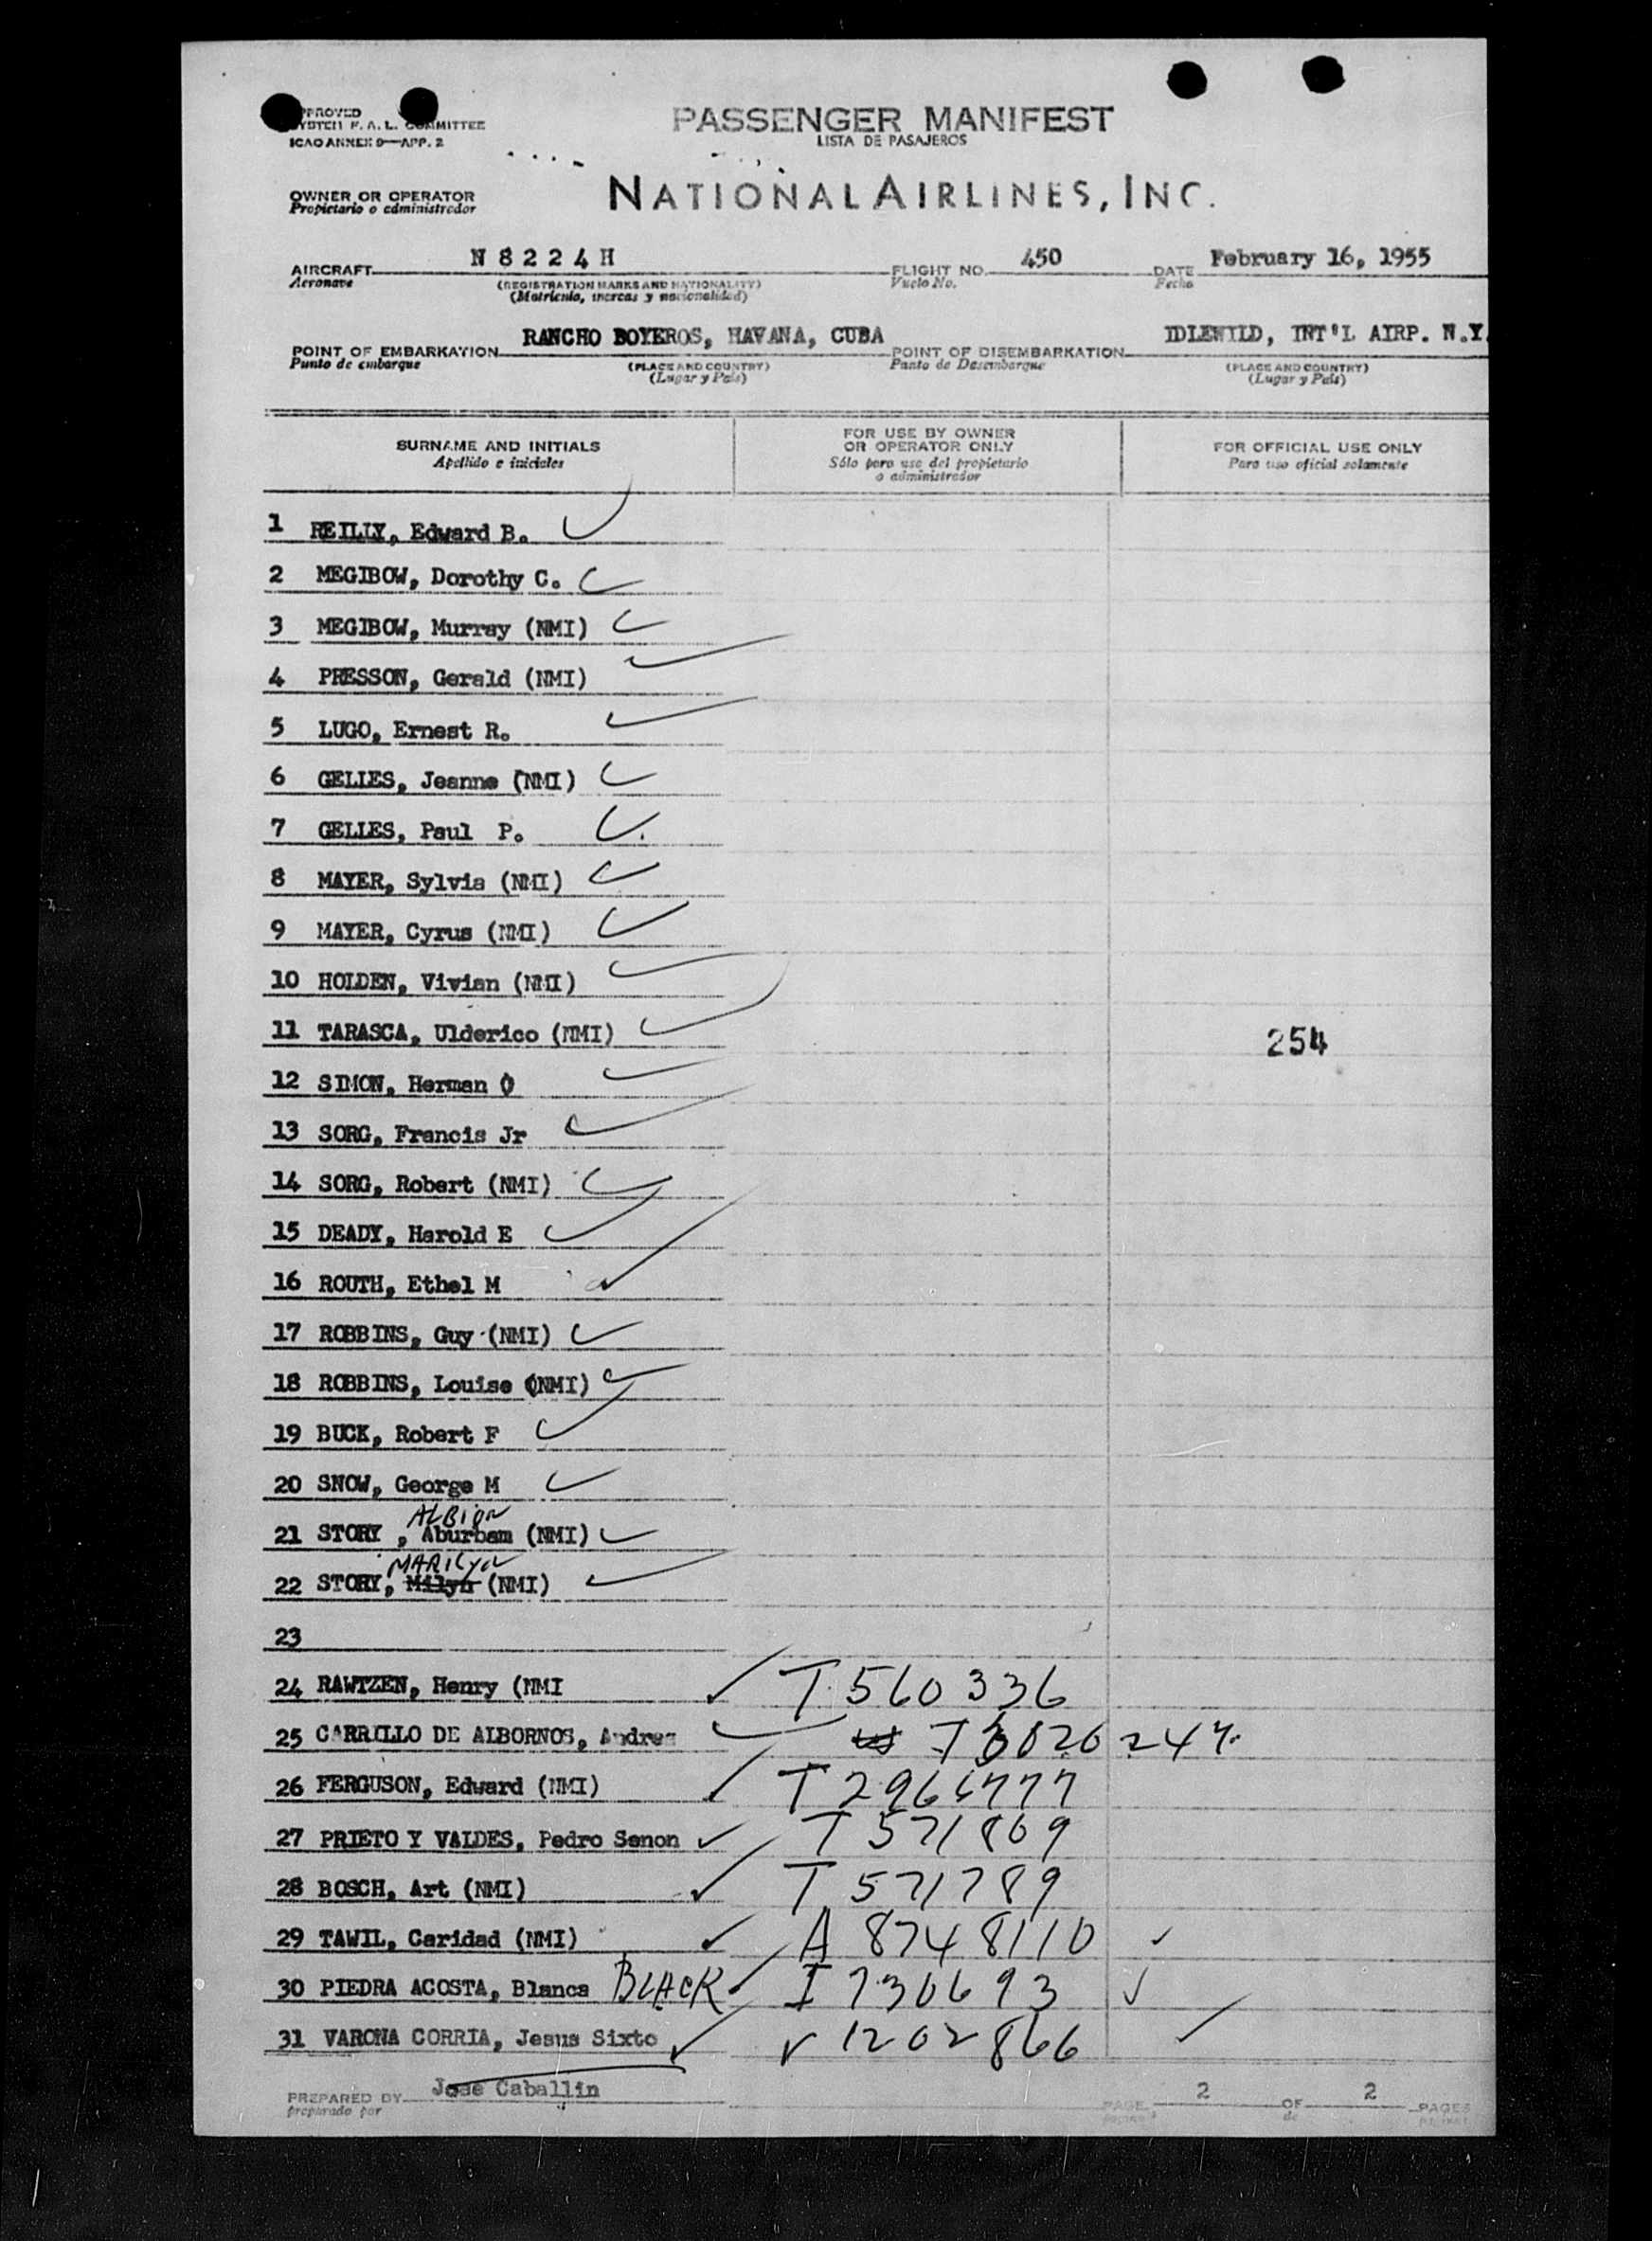 APPROVED
SYSTEM F. A. L. COMMITTEE
ICAO ANNEX 9—APP. 2
PASSENGER MANIFEST
LISTA DE PASAJEROS
OWNER OR OPERATOR
Propietario o administrador
NATIONAL AIRLINES, INC.
AIRCRAFT N 8 2 2 4 H FLIGHT NO. 450 DATE February 16, 1955
Aeronave (REGISTRATION MARKS AND NATIONALITY) Vuelo No. Fecha
(Matrícula, marcas y nacionalidad)
POINT OF EMBARKATION RANCHO BOYEROS, HAVANA, CUBA POINT OF DISEMBARKATION IDLEWILD, INT'L AIRP. N.Y.
Punto de embarque (PLACE AND COUNTRY) Punto de Desembarque (PLACE AND COUNTRY)
(Lugar y País) (Lugar y País)
SURNAME AND INITIALS
Apellido e iniciales
FOR USE BY OWNER
OR OPERATOR ONLY
Sólo para uso del propietario
o administrador
FOR OFFICIAL USE ONLY
Para uso oficial solamente
1 REILLY, Edward B.
2 MEGIBOW, Dorothy C.
3 MEGIBOW, Murray (NMI)
4 PRESSON, Gerald (NMI)
5 LUGO, Ernest R.
6 GELLES, Jeanne (NMI)
7 GELLES, Paul P.
8 MAYER, Sylvia (NMI)
9 MAYER, Cyrus (NMI)
10 HOLDEN, Vivian (NMI)
11 TARASCA, Ulderico (NMI) 254
12 SIMON, Herman O
13 SORG, Francis Jr
14 SORG, Robert (NMI)
15 DEADY, Harold E
16 ROUTH, Ethel M
17 ROBBINS, Guy (NMI)
18 ROBBINS, Louise (NMI)
19 BUCK, Robert F
20 SNOW, George M
ALBION
21 STORY , Aburbam (NMI)
MARILYN
22 STORY, Milyn (NMI)
23
24 RAWTZEN, Henry (NMI T 560336
25 CARRILLO DE ALBORNOS, Andres
26 FERGUSON, Edward (NMI) T 2966777
27 PRIETO Y VALDES, Pedro Senon T 571869
28 BOSCH, Art (NMI) T 571789
29 TAWIL, Caridad (NMI) A 8748110
30 PIEDRA ACOSTA, Blanca BLACK I 730693
31 VARONA CORRIA, Jesus Sixto V 1202866
PREPARED BY Jose Caballin PAGE 2 OF 2 PAGES
preparado por de